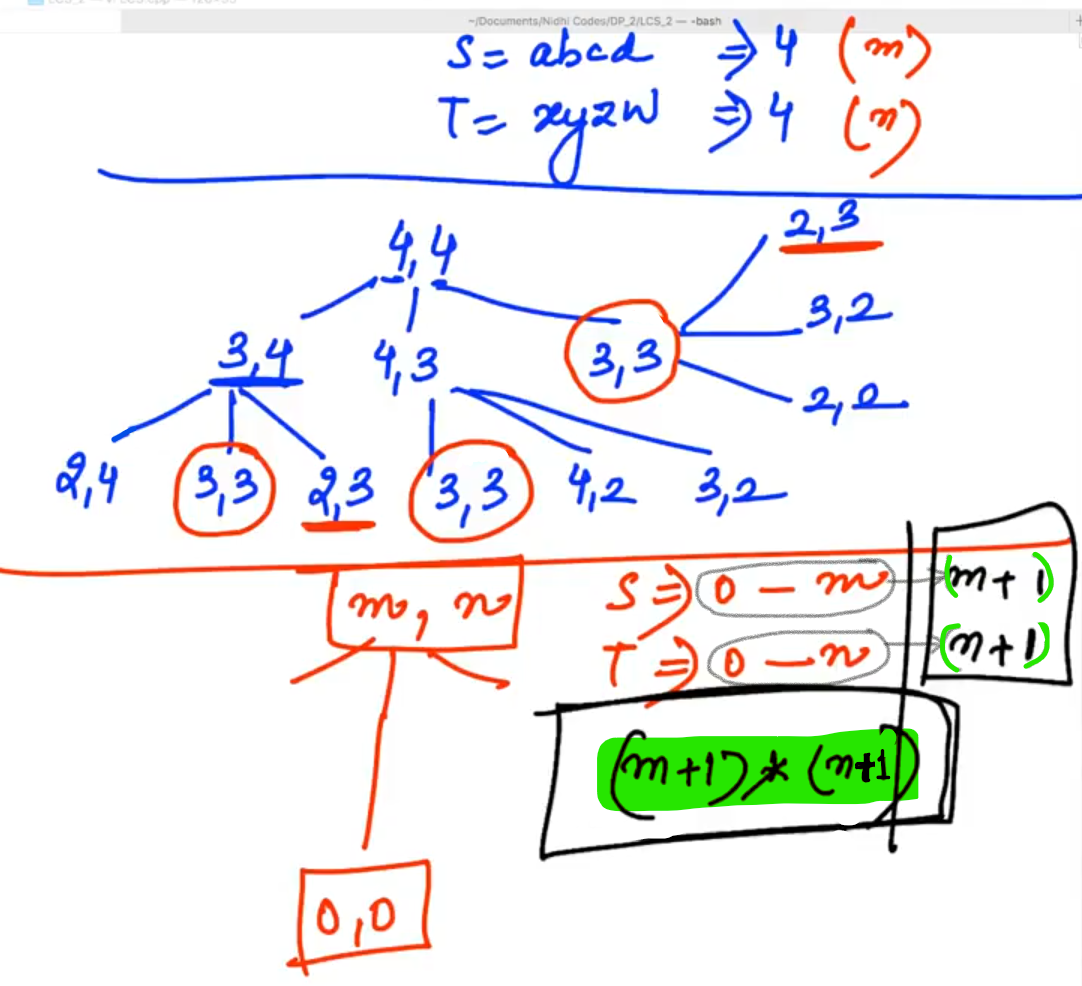 ~/Documents/Nidhi Codes/DP_2/LCS_2 — -bash
S = abcd ⇒ 4 (m)
T = xyzw ⇒ 4 (n)
2,3
4,4
3,2
3,4 4,3 3,3
2,0
2,4 3,3 2,3 3,3 4,2 3,2
m, n S ⇒ 0 — m (m+1)
T ⇒ 0 — n (n+1)
(m+1) * (n+1)
0,0